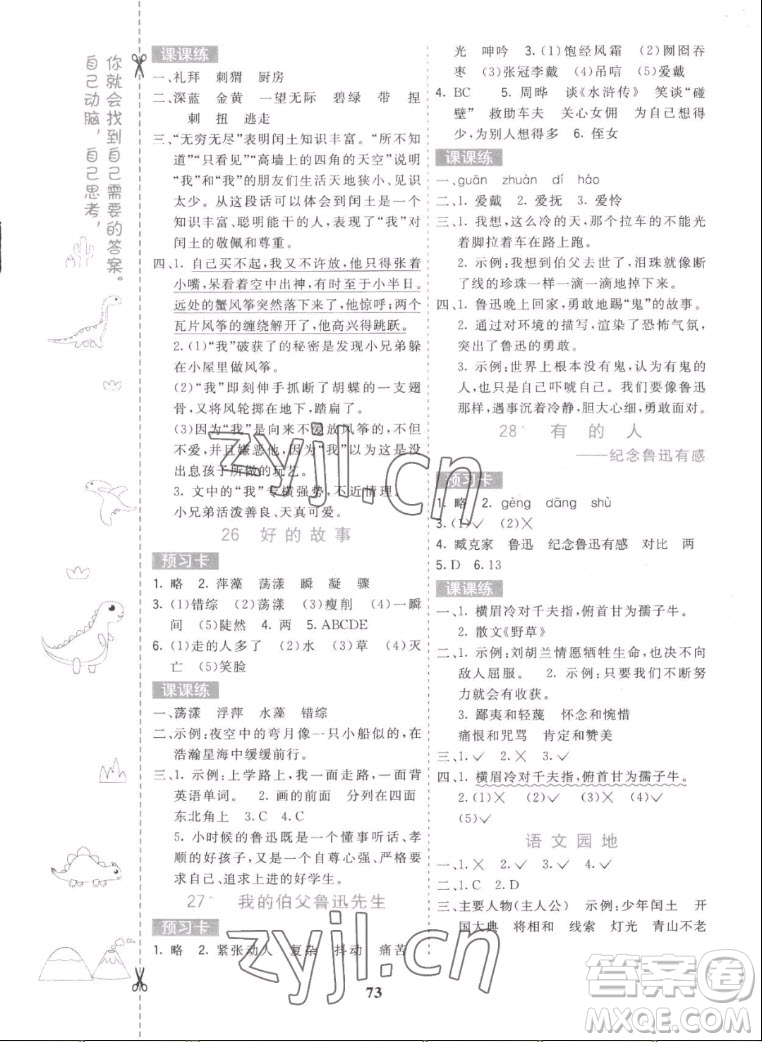 你就会找到自己需要的答案。
自己动脑，自己思考，
课课练
一、礼拜 刺猬 厨房
二、深蓝 金黄 一望无际 碧绿 带 捏
刺 扭 逃走
三、“无穷无尽”表明闰土知识丰富。“所不知
道”“只看见”“高墙上的四角的天空”说明
“我”和“我”的朋友们生活天地狭小、见识
太少。从这段话可以看出“我”认为闰土是一个
知识丰富、聪明能干的人，表现了“我”对
闰土的敬佩和尊重。
四、1. 自己买不起，我又不许放，他只得张着
小嘴，呆看着空中出神，有时至于小半日。
远处的蟹风筝突然落下来了，他惊呼；两个
瓦片风筝的缠绕解开了，他高兴得跳跃。
2.(1)“我”破获了的秘密是小兄弟躲
在小屋里偷做风筝。
(2)“我”即刻伸手折断了胡蝶的一支翅
骨，又将风轮掷在地下，踏扁了。
(3)因为“我”是向来不爱放风筝的，不但
不爱，并且嫌恶他，因为“我”以为这是没
出息孩子所做的玩艺。
3. 文中的“我”专横强势，不近情理。
小兄弟活泼善良、天真可爱。
26 好的故事
预习卡
1. 略 2. 萍藻 荡漾 瞬 凝 骤
3.(1)错综 (2)荡漾 (3)瘦削 (4)一瞬
间 (5)陡然 4. 两 5. ABCDE
6.(1)走的人多了 (2)水 (3)草 (4)灭
亡 (5)笑脸
课课练
一、荡漾 浮萍 水藻 错综
二、示例：夜空中的弯月像一只小船似的，在
浩瀚星海中缓缓前行。
三、1. 示例：上学路上，我一面走着，一面背
英语单词。 2. 画的前面 分列在四面
东北角上 3. C 4. C
5. 小时候的鲁迅既是一个懂事听话、孝
顺的好孩子，又是一个自尊自强、严于律
己、追求进步的好学生。
27 我的伯父鲁迅先生
预习卡
1. 略 2. 紧张动人 复杂 抖动 痛苦
光 呻吟 3.(1)饱经风霜 (2)囫囵吞
枣 (3)张冠李戴 (4)吊唁 (5)爱戴
4. BC 5. 周晔 谈《水浒传》 笑谈“碰
壁” 救助车夫 关心女佣 为自己想得
少，为别人想得多 6. 侄女
课课练
一、guān zhuàn dí háo
二、1. 爱戴 2. 爱抚 3. 爱怜
三、1. 我想，这么冷的天，那个拉车的怎么能光
着脚拉着车在路上跑。
2. 示例：想到伯父去世了，泪珠就像断了
线的珍珠一样一滴一滴地往下掉。
四、1. 鲁迅晚上回家，勇敢地踢“鬼”的故事。
2. 通过对环境的描写，渲染了恐怖气氛，
突出了鲁迅的勇敢。
3. 示例：世界上根本没有鬼，那些怕鬼
的人，是自己吓唬自己。我们要像鲁迅
那样，遇事沉着冷静，胆大心细，勇敢面对。
28 有的人
——纪念鲁迅有感
预习卡
1. 略 2. gèng dāng shù
3.(1)✓ (2)✕
4. 臧克家 鲁迅 纪念鲁迅有感 对比 两
5. D 6. 13
课课练
一、1. 横眉冷对千夫指，俯首甘为孺子牛。
2. 散文《野草》
二、1. 示例：刘胡兰情愿牺牲生命，也决不向
敌人屈服。 2. 示例：只要我们不断努
力就会有收获。
3. 鄙夷和轻蔑 怀念和惋惜
痛恨和咒骂 肯定和赞美
三、1. ✓ 2. ✕ 3. ✓ 4. ✓
四、1. 横眉冷对千夫指，俯首甘为孺子牛。
2.(1)✓ (2)✕ (3)✕ (4)✓
(5)✓
语文园地
一、1. ✕ 2. ✓ 3. ✓ 4. ✓
二、1. C 2. D
三、主要人物(主人公) 示例：少年闰土 开
国大典 将相和 线索 灯光 青山不老
73
zyjl.cn
zyjl.cn
答案圈
MXQE.COM